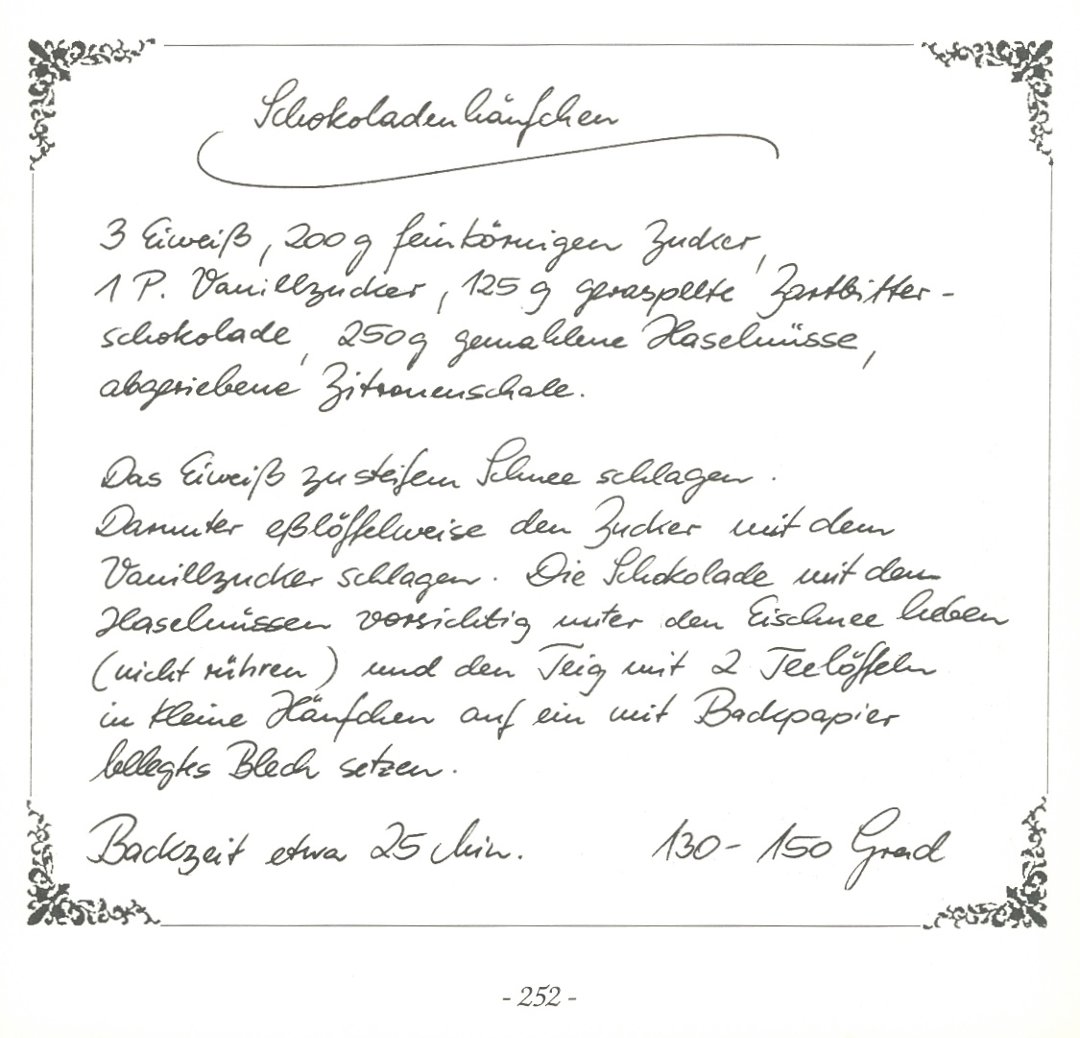 Schokoladenhäufchen
3 Eiweiß, 200 g feinkörnigen Zucker,
1 P. Vanillzucker, 125 g geraspelte Zartbitter-
schokolade, 250g gemahlene Haselnüsse,
abgeriebene Zitronenschale.
Das Eiweiß zu steifem Schnee schlagen.
Darunter eßlöffelweise den Zucker mit dem
Vanillzucker schlagen. Die Schokolade mit den
Haselnüssen vorsichtig unter den Eischnee heben
(nicht rühren) und den Teig mit 2 Teelöffeln
in kleine Häufchen auf ein mit Backpapier
belegtes Blech setzen.
Backzeit etwa 25 Min. 130 - 150 Grad
- 252 -